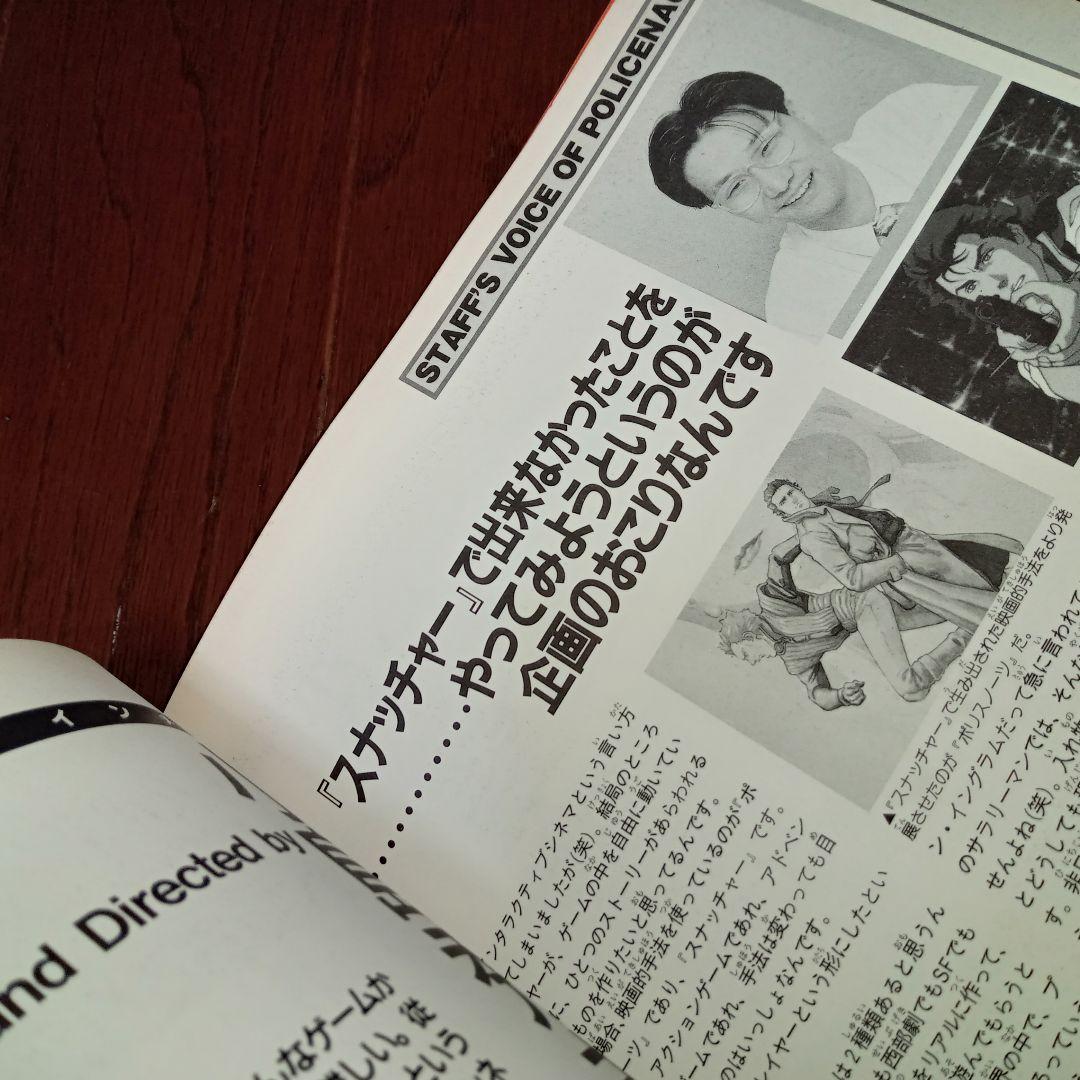 STAFF'S VOICE OF POLICENA
『スナッチャー』で出来なかったことを
············やってみようというのが
企画のおこりなんです
▲『スナッチャー』で生み出された映画的手法をより発
展させたのが『ポリスノーツ』だ。
ンタラクティブシネマという言い方
てしまいましたが(笑)。結局のところ
ヤーが、ゲームの中を自由に動いてい
に、ひとつのストーリーがあらわれる
ものを作りたいと思ってるんです。
場合、映画的手法を使っているのが『ポ
ーツ』であり、『スナッチャー』です。
アクションゲームであれ、アドベン
ームであれ、手法は変わっても目
のはいっしょなんです。
レイヤーという形にしたとい
ン・イングラムだって急に言われて
のサラリーマンでは、そんな
せんよね(笑)。入れ物
とどうしても
す。非
は2種類あると思うん
も西部劇でもSFでも
をリアルに作って、
遊んでもらうと
界の中で、プ
っていま
イン
and Directed by
んなゲームが
しい。従
という
ネ